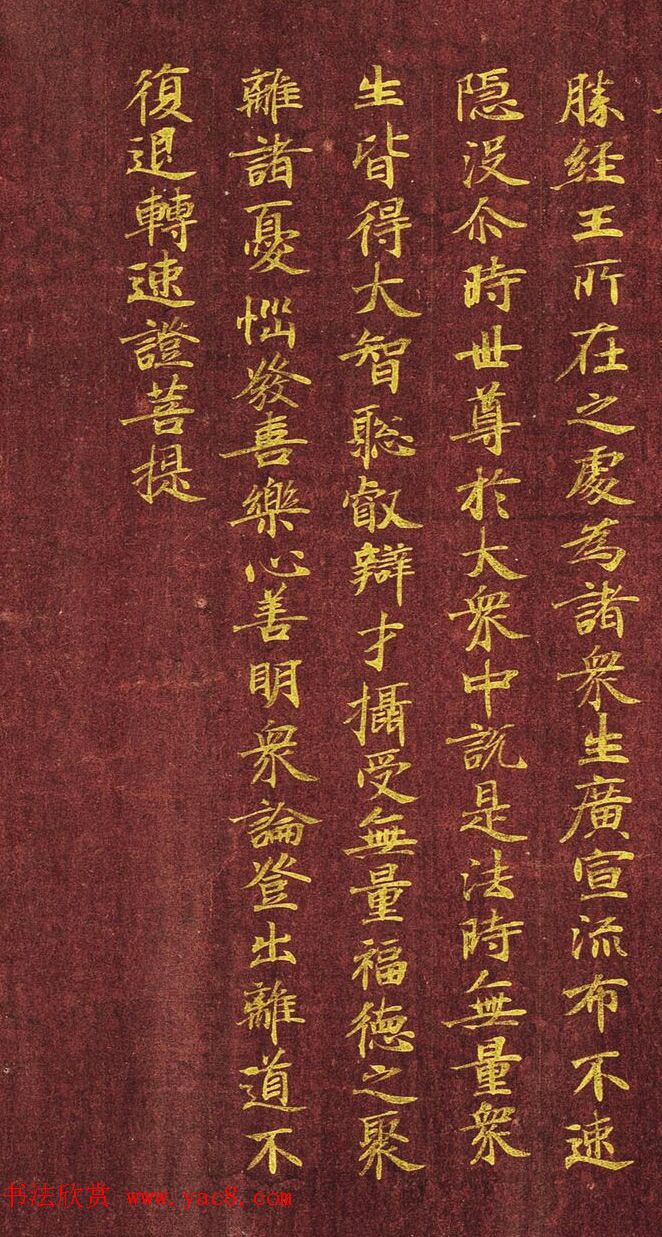 勝經王所在之處為諸衆生廣宣流布不速
隱没尒時世尊於大衆中說是法時無量衆
生皆得大智聡叡辯才攝受無量福德之聚
離諸憂惱發喜樂心善明衆論登出離道不
復退轉速證菩提
书法欣赏 www.yac8.com